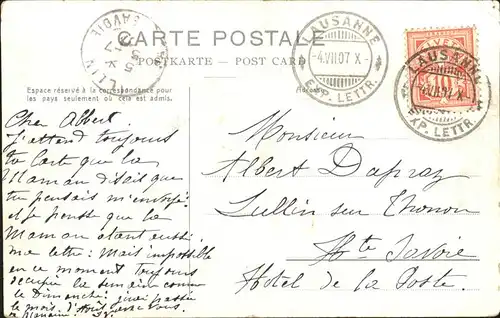 CARTE POSTALE
POSTKARTE — POST CARD
Espace réservé à la correspondance pour
les pays seulement où cela est admis.
Adresse
LAUSANNE
-4.VII.07 X-
EXP. LETTR.
HELVETIA
10
LAUSANNE
-4.VII.07 X-
EXP. LETTR.
SAVOIE
Cher Albert.
J'attend toujours
ta Carte que la
Maman disait que
tu pensais
et je pense que la
Maman attend aussi
ma lettre: Mais impossible
en ce moment toujours
occupée la semaine comme
le Dimanche;
le mois.
Monsieur
Albert Dapraz
Lullin sur Thonon
Hte Savoie
Hotel de la Poste.